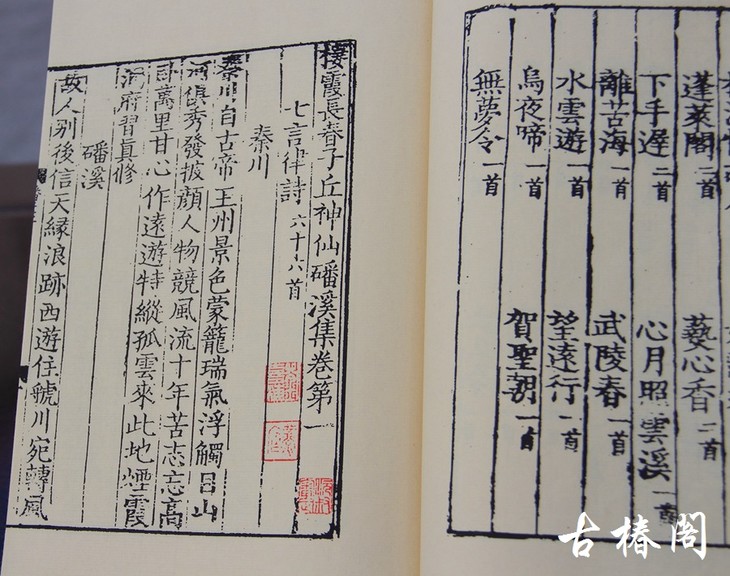 蓬萊閣 二首 爇心香 二首
下手遲 二首 心月照雲溪 一首
離苦海 一首 武陵春 一首
水雲遊 一首 望遠行 一首
烏夜啼 一首 賀聖朝 一首
無夢令 一首
棲霞長春子丘神仙磻溪集卷第一
七言律詩 六十六首
秦川
秦川自古帝王州景色蒙籠瑞氣浮觸目山
河俱秀發披顏人物競風流十年苦志忘高
臥萬里甘心作遠遊特縱孤雲來此地煙霞
洞府習真修
磻溪
故人別後信天緣浪跡西遊住虢川宛轉風
古椿閣